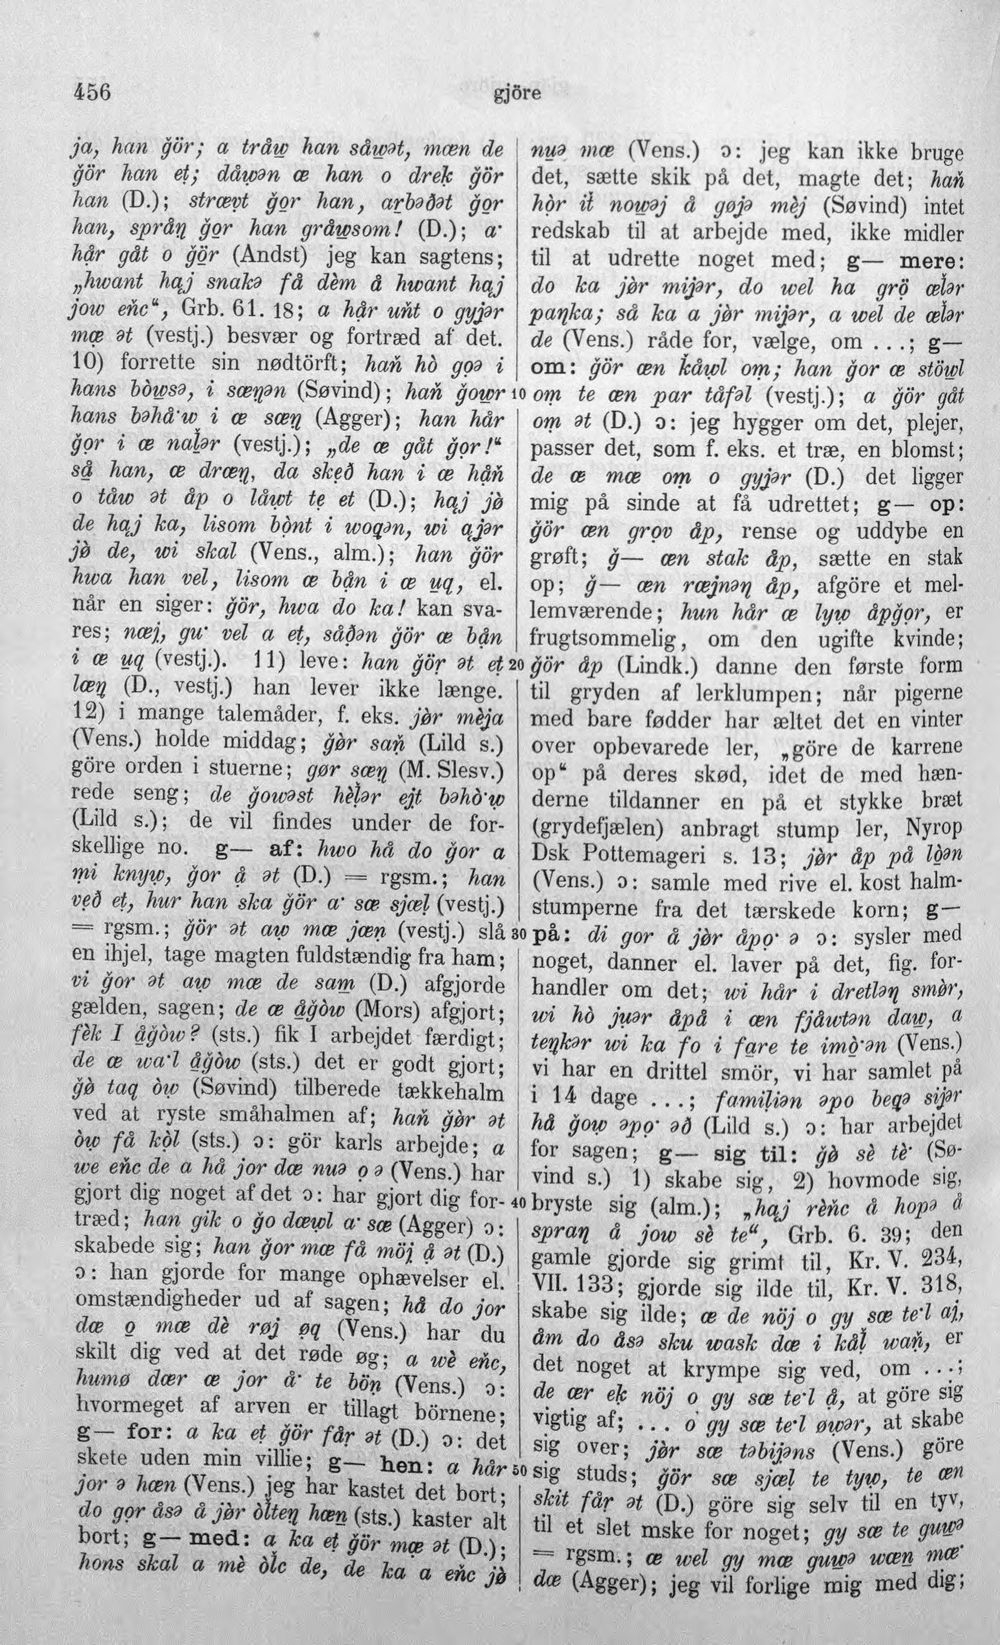 456
gjöre
ja, han ğör; a tråw̲ han såw̲ət, mæn de
ğör han eṭ; dåw̲ən æ han o dreḳ ğör
han (D.); stræv̲t ğo̲r han, ar̲bəðət ğo̲r
han, språꬻ ğo̲r han gråw̲som! (D.); a·
hạ̊r gåt o ğö̲r (Andst) jeg kan sagtens;
„hwant haj snakə få dèm å hwant haj
jow eńc“, Grb. 61. 18; a hạ̊r uńt o gyjər
mæ ət (vestj.) besvær og fortræd af det.
10) forrette sin nødtörft; hań hò goə i
hans bòwsə, i sæŋən (Søvind); hań ğowr
hans bəhå·w i æ sæŋ (Agger); han hår
ğor i æ nalər (vestj.); „de æ gåt ğor!“
så han, æ dræŋ, da skeð han i æ håń
o tåw ət åp o låwt te et (D.); haj jø̀
de haj ka, lisom bònt i woqən, wi ajər
jø̀ de, wi skal (Vens., alm.); han ğör
hwa han vel, lisom æ bạ̊n i æ uq, el.
når en siger: ğör, hwa do ka! kan sva-
res; næj, gu· vel a eṭ, såðən ğör æ bạ̊n
i æ uq (vestj.). 11) leve: han ğör ət eṭ
læŋ (D., vestj.) han lever ikke længe.
12) i mange talemåder, f. eks. jø̀r mèja
(Vens.) holde middag; ğø̀r sań (Lild s.)
göre orden i stuerne; gør sæŋ (M. Slesv.)
rede seng; de ğowəst hèlər ejt bəhò·w
(Lild s.); de vil findes under de for-
skellige no. g— af: hwo hå do ğor a
mi knyw, ğor å ət (D.) = rgsm.; han
veð eṭ, hur han ska ğör a· sæ sjæl (vestj.)
= rgsm.; ğör ət aw mæ jæn (vestj.) slå
en ihjel, tage magten fuldstændig fra ham;
vi ğor ət aw mæ de sam (D.) afgjorde
gælden, sagen; de æ åğòw (Mors) afgjort;
fèk I åğòw? (sts.) fik I arbejdet færdigt;
de æ wa·l åğòw (sts.) det er godt gjort;
ğø̀ taq òw (Søvind) tilberede tækkehalm
ved at ryste småhalmen af; hań ğø̀r ət
òw få kòl (sts.) ɔ: gör karls arbejde; a
we eńc de a hå jor dæ nuə o ə (Vens.) har
gjort dig noget af det ɔ: har gjort dig for-
træd; han gik o ğo dæwl a· sæ (Agger) ɔ:
skabede sig; han ğor mæ få möj å ət (D.)
ɔ: han gjorde for mange ophævelser el.
omstændigheder ud af sagen; hå do jor
dæ o mæ dè røj øq (Vens.) har du
skilt dig ved at det røde øg; a wè eńc,
humø dær æ jor å· te bön (Vens.) ɔ:
hvormeget af arven er tillagt börnene;
g— for: a ka eṭ ğör får ət (D.) ɔ: det
skete uden min villie; g— hen: a hår
jor ə hæn (Vens.) jeg har kastet det bort;
do gor åsə å jø̀r òlteŋ hæn (sts.) kaster alt
bort; g— med: a ka eṭ ğör mæ ət (D.);
hons skal a mè òlc de, de ka a eńc jø̀
nuə mæ (Vens.) ɔ: jeg kan ikke bruge
det, sætte skik på det, magte det; hań
hòr it nowəj å gøjə mèj (Søvind) intet
redskab til at arbejde med, ikke midler
til at udrette noget med; g— mere:
do ka jø̀r mijər, do wel ha grö ælər
paŋka; så ka a jø̀r mijər, a wel de ælər
de (Vens.) råde for, vælge, om ...; g—
om: ğör æn kåwl om; han ğor æ stöwl
10 om te æn par tåfəl (vestj.); a ğör gåt
om ət (D.) ɔ: jeg hygger om det, plejer,
passer det, som f. eks. et træ, en blomst;
de æ mæ om o gyjər (D.) det ligger
mig på sinde at få udrettet; g— op:
ğör æn grov åp, rense og uddybe en
grøft; ğ— æn stak åp, sætte en stak
op; ğ— æn ræjnəŋ åp, afgöre et mel-
lemværende; hun hår æ lyw åpğor, er
frugtsommelig, om den ugifte kvinde;
20 ğör åp (Lindk.) danne den første form
til gryden af lerklumpen; når pigerne
med bare fødder har æltet det en vinter
over opbevarede ler, „göre de karrene
op“ på deres skød, idet de med hæn-
derne tildanner en på et stykke bræt
(grydefjælen) anbragt stump ler, Nyrop
Dsk Pottemageri s. 13; jø̀r åp på lòən
(Vens.) ɔ: samle med rive el. kost halm-
stumperne fra det tærskede korn; g—
30 på: di gor å jø̀r åpo· ə ɔ: sysler med
noget, danner el. laver på det, fig. for-
handler om det; wi hår i dretləŋ smø̀r,
wi hò juər åpå i æn fjåwtən daw, a
teŋkər wi ka fo i fare te imò·ən (Vens.)
vi har en drittel smör, vi har samlet på
i 14 dage ...; familiən əpo beqə sijər
hå ğow əpo· əð (Lild s.) ɔ: har arbejdet
for sagen; g— sig til: ğø̀ sè tè· (Sø-
vind s.) 1) skabe sig, 2) hovmode sig,
40 bryste sig (alm.); „haj rèńc å hopə å
spraŋ å jow sè te“, Grb. 6. 39; den
gamle gjorde sig grimt til, Kr. V. 234,
VII. 133; gjorde sig ilde til, Kr. V. 318,
skabe sig ilde; æ de nöj o gy sæ te·l aj,
åm do åsə sku wask dæ i kål wań, er
det noget at krympe sig ved, om ...;
de ær ek nöj o gy sæ te·l å, at göre sig
vigtig af; ... o gy sæ te·l øwər, at skabe
sig over; jø̀r sæ təbijəns (Vens.) göre
50 sig studs; ğör sæ sjæl te tyw, te æn
skit får ət (D.) göre sig selv til en tyv,
til et slet mske for noget; gy sæ te guwə
= rgsm.; æ wel gy mæ guwə wæn mæ·
dæ (Agger); jeg vil forlige mig med dig;